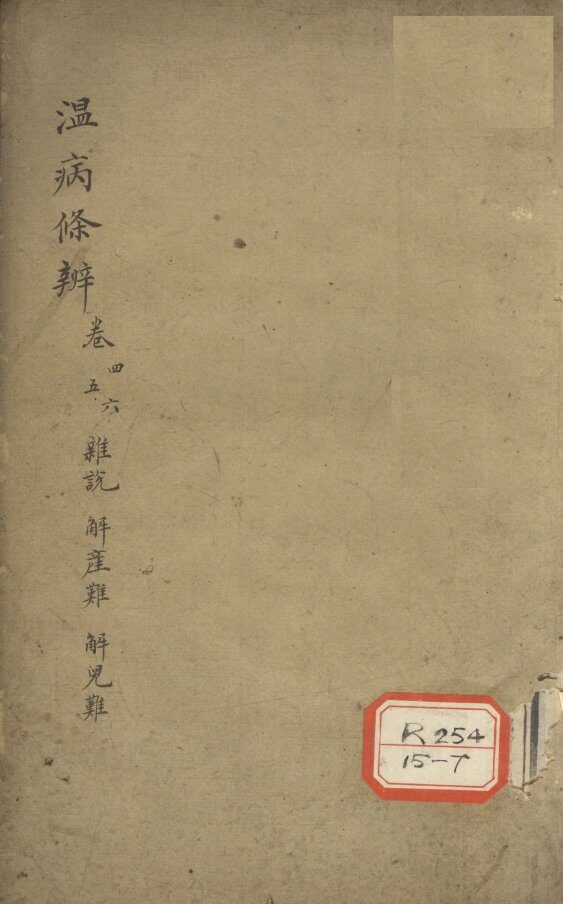 温病條辨
卷四五六 雜說 解產難 解兒難
R 254
15-7